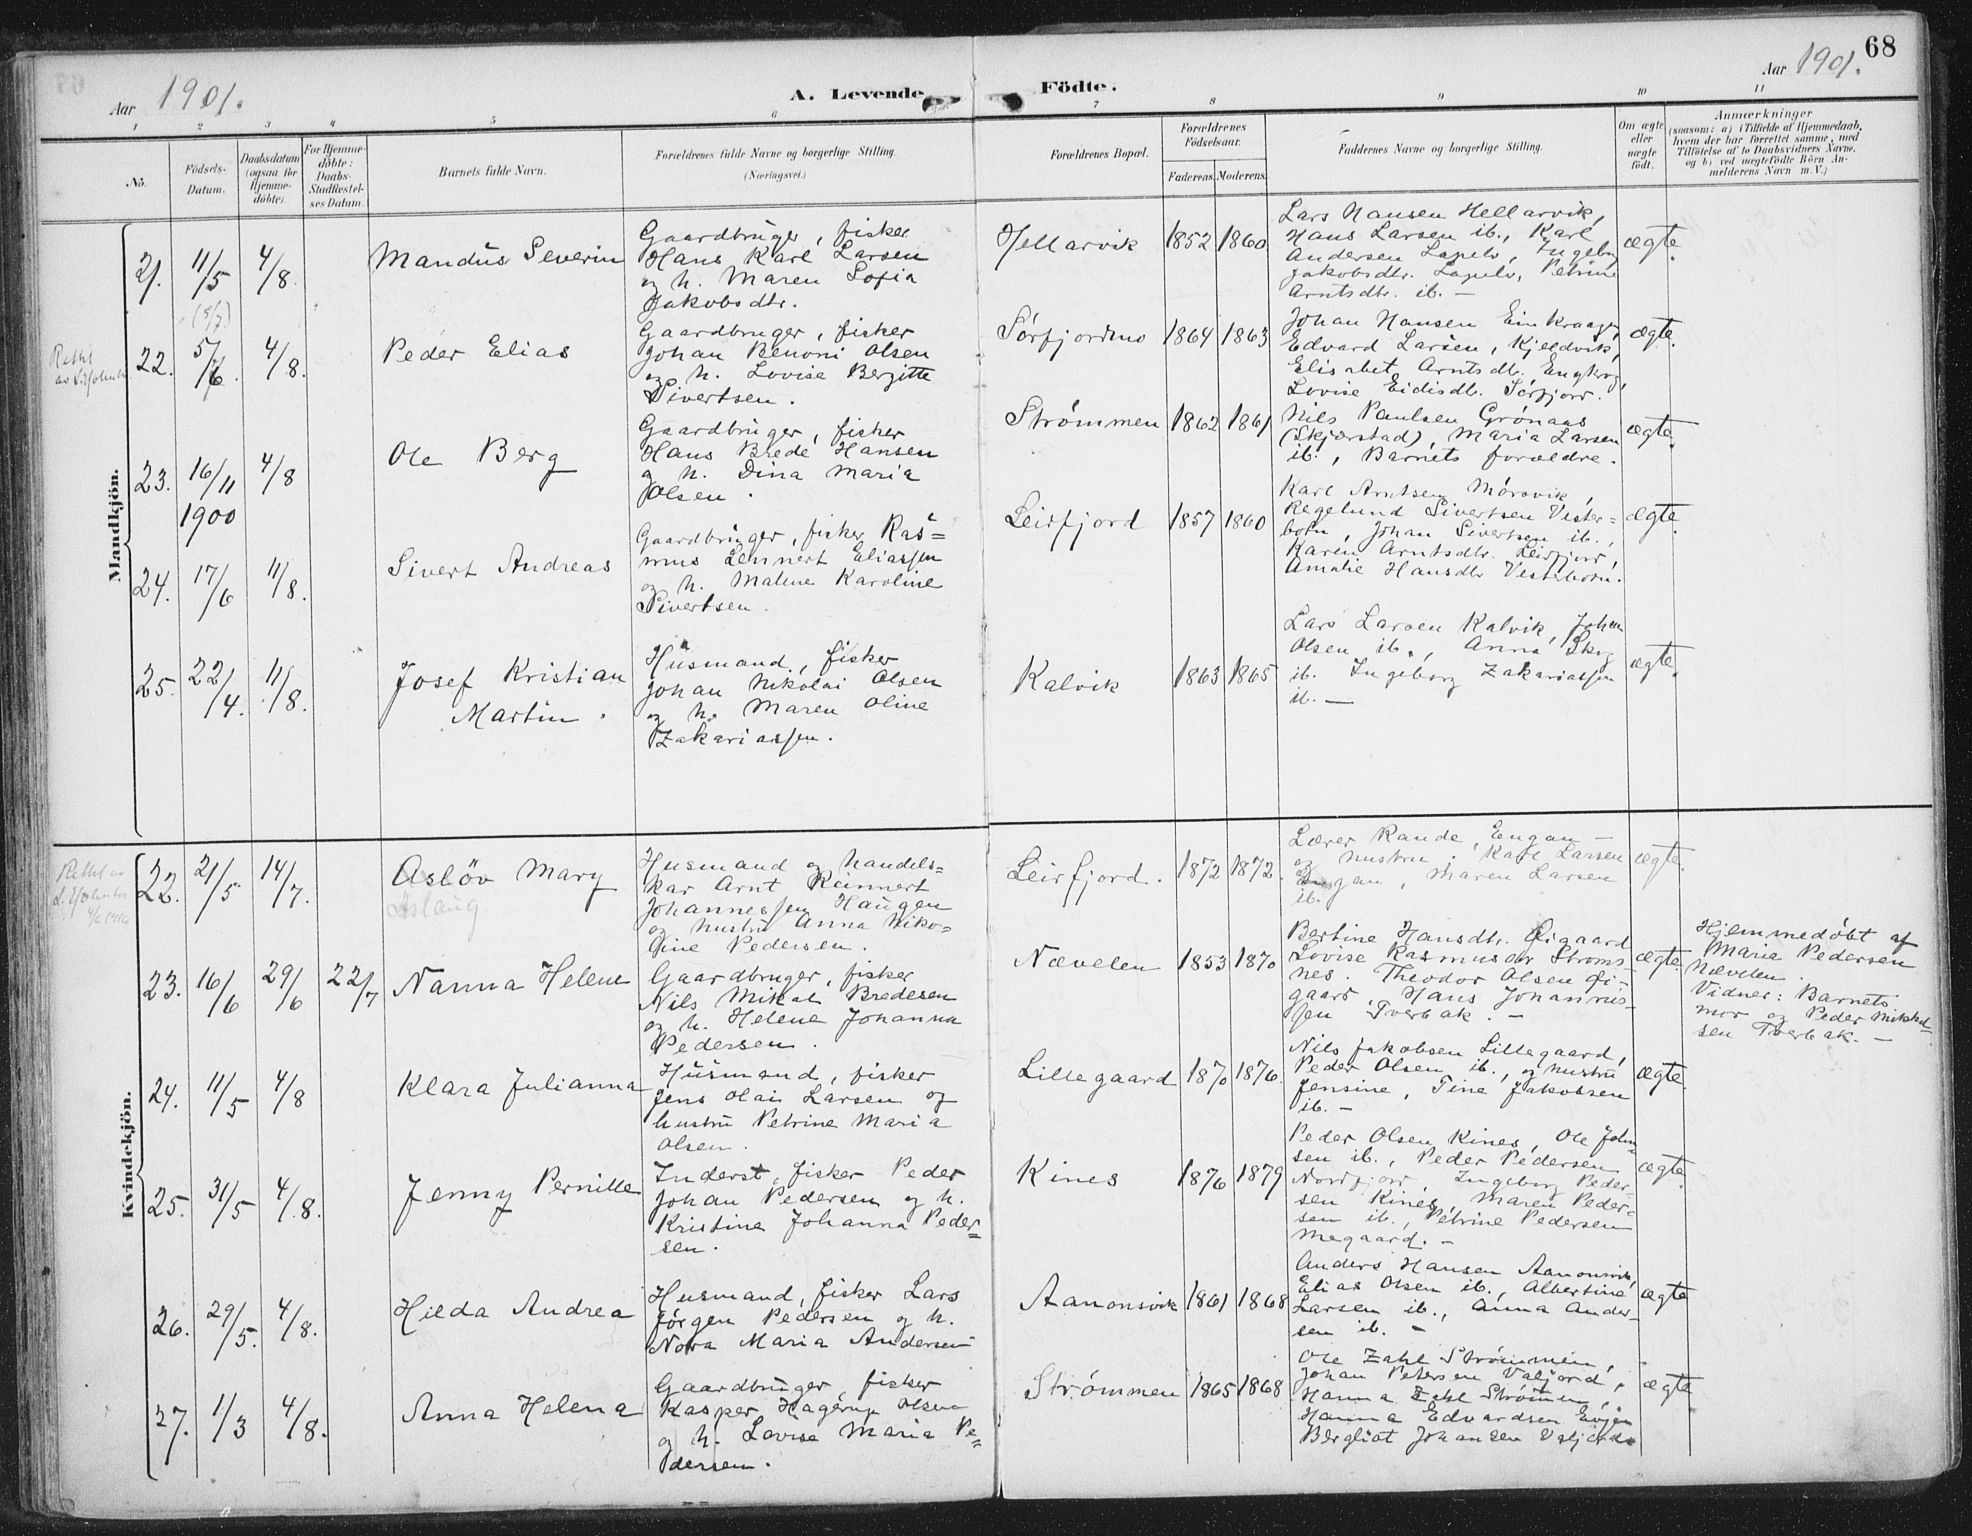 68
Aar 1901.
A. Levende
Födte.
Aar 1901.
1 2 3 4 5 6 7 8 9 10 11
No.
Födsels-
Datum.
Daabsdatum
(ogsaa for
Hjemme-
döbte)
For Hjemme-
döbte:
Daabs-
Stadfæstel-
ses Datum.
Barnets fulde Navn.
Forældrenes fulde Navne og borgerlige Stilling.
(Næringsvei.)
Forældrenes Bopæl.
Forældrenes
Födselsaar.
Faderens. Moderens.
Faddernes Navne og borgerlige Stilling.
Om ægte
eller
uægte
födt.
Anmærkninger
(saasom: a) i Tilfælde af Hjemmedaab,
hvem der har forrettet samme, med
Tilföielse af to Daabsvidners Navne,
og b) ved uægtefödte Börn An-
melderens Navn m. V.)
Mandkjön.
21. 11/5 4/8.
Mandus Severin
Gaardbruger, fisker
Hans Karl Larsen
og h. Maren Sofia
Jakobsdtr.
Hellarvik 1852 1860
Lars Hansen Hellarvik,
Hans Larsen ib., Karl
Andersen Lapelv, Ingebg
Jakobsdtr. Lapelv, Petrine
Arntsdtr. ib. —
ægte.
(5/7.)
22. 5/6. 4/8.
Peder Elias
Gaardbruger, fisker
Johan Benoni Olsen
og h. Lovise Bergitte
Sivertsen.
Sörfjordmo 1864 1863
Johan Hansen
Edvard Larsen, Kjeldvik,
Elisabet Arntsdtr.
Lovise Eidisdtr. Sörfjord.
ægte.
23. 16/11 1900 4/8
Ole Berg
Gaardbruger, fisker
Hans Brede Hansen
og h. Dina Maria
Olsen.
Strømmen 1862 1861
Nils Paulsen Grønaas
(Skjærstad), Maria Larsen
ib., Barnets forældre.
ægte.
24. 17/6 11/8.
Sivert Andreas
Gaardbruger, fisker Ras=
mus Lennert Eliassen
og h. Maline Karoline
Sivertsen.
Leirfjord 1857 1860
Karl Arntsen Mörsvik,
Regelund Sivertsen Vester=
botn, Johan Sivertsen ib.,
Karen Arntsdtr. Leirfjord,
Amalie Hansdtr Vesterbotn.
ægte.
25. 22/4. 11/8.
Josef Kristian
Martin.
Husmand, fisker
Johan Nikolai Olsen
og h. Maren Oline
Zakariassen.
Kalvik 1863 1865
Lars Larsen Kalvik, Johan
Olsen ib., Anna Skog
ib. Ingeborg Zakariassen
ib. —
ægte.
Kvindekjön.
22. 21/5 14/7.
Aslöv Mary
Aslaug
Husmand og handels=
kar Arnt Reinnert
Johannessen Haugen
og hustru Anna Niko=
line Pedersen.
Leirfjord. 1872 1872.
Lærer Rande, Engan —
og hustru. Karl Larsen
Engan, Maren Larsen
ib.
ægte.
23. 16/6 29/6 22/7
Nanna Helene
Gaardbruger, fisker
Nils Mikal Bredesen
og h. Helene Johanna
Pedersen.
Nævelen 1853 1870
Bertine Hansdtr. Øigaard
Lovise Rasmusdtr Strøms=
nes. Theodor Olsen Øi=
gaard, Hans Johannes=
sen Tverbak. —
ægte.
Hjemmedøbt af
Maria Pedersen
Nævelen.
Vidner: Barnets
mor og Peder Mikkel=
sen Tverbak. —
24. 11/5 4/8
Klara Julianna
Husmand, fisker
Jens Olai Larsen og
hustru Petrine Maria
Olsen.
Lillegaard 1870 1876.
Nils Jakobsen Lillegaard,
Peder Olsen ib., og hustru
Jensine, Tine Jakobsen
ib. —
ægte.
25. 31/5 4/8.
Jenny Pernille
Inderst, fisker Peder
Johan Pedersen og h.
Kristine Johanna Peder=
sen.
Kines 1876 1879
Peder Olsen Kines, Ole John=
sen ib., Peder Pedersen
Nordfjord, Ingeborg Peder=
sen Kines, Maren Peder=
sen ib., Petrine Pedersen
Megaard. —
ægte.
26. 29/5. 4/8.
Hilda Andrea
Husmand, fisker Lars
Jörgen Pedersen og h.
Nora Maria Andersen
Aanonsvik 1861 1868
Anders Hansen Aanonsvik,
Elias Olsen ib., Albertine
Larsen ib., Anna Ander=
sen ib. —
ægte
27. 1/3 4/8.
Anna Helena
Gaardbruger, fisker
Kasper Hagerup Olsen
og h. Lovise Maria Pe=
dersen.
Strømmen 1865 1868
Ole Zahl Strømmen,
Johan Petersen Valjord,
Hanna Zahl Strømmen,
Hanna Edvardsen Evjen
Bergliot Johansen Valjord.
ægte